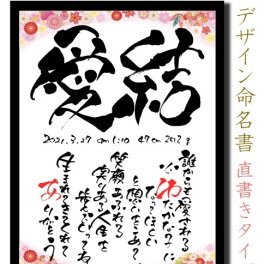 結愛
2021.3.27 am 1:10 49cm 2912g
誰からも愛される
ゆたかな子に
なってほしい
と願いをこめて
笑顔あふれる
実りある人生を
歩んでってね
生まれてきてくれて
ありがとう
デザイン命名書 直書きタイ